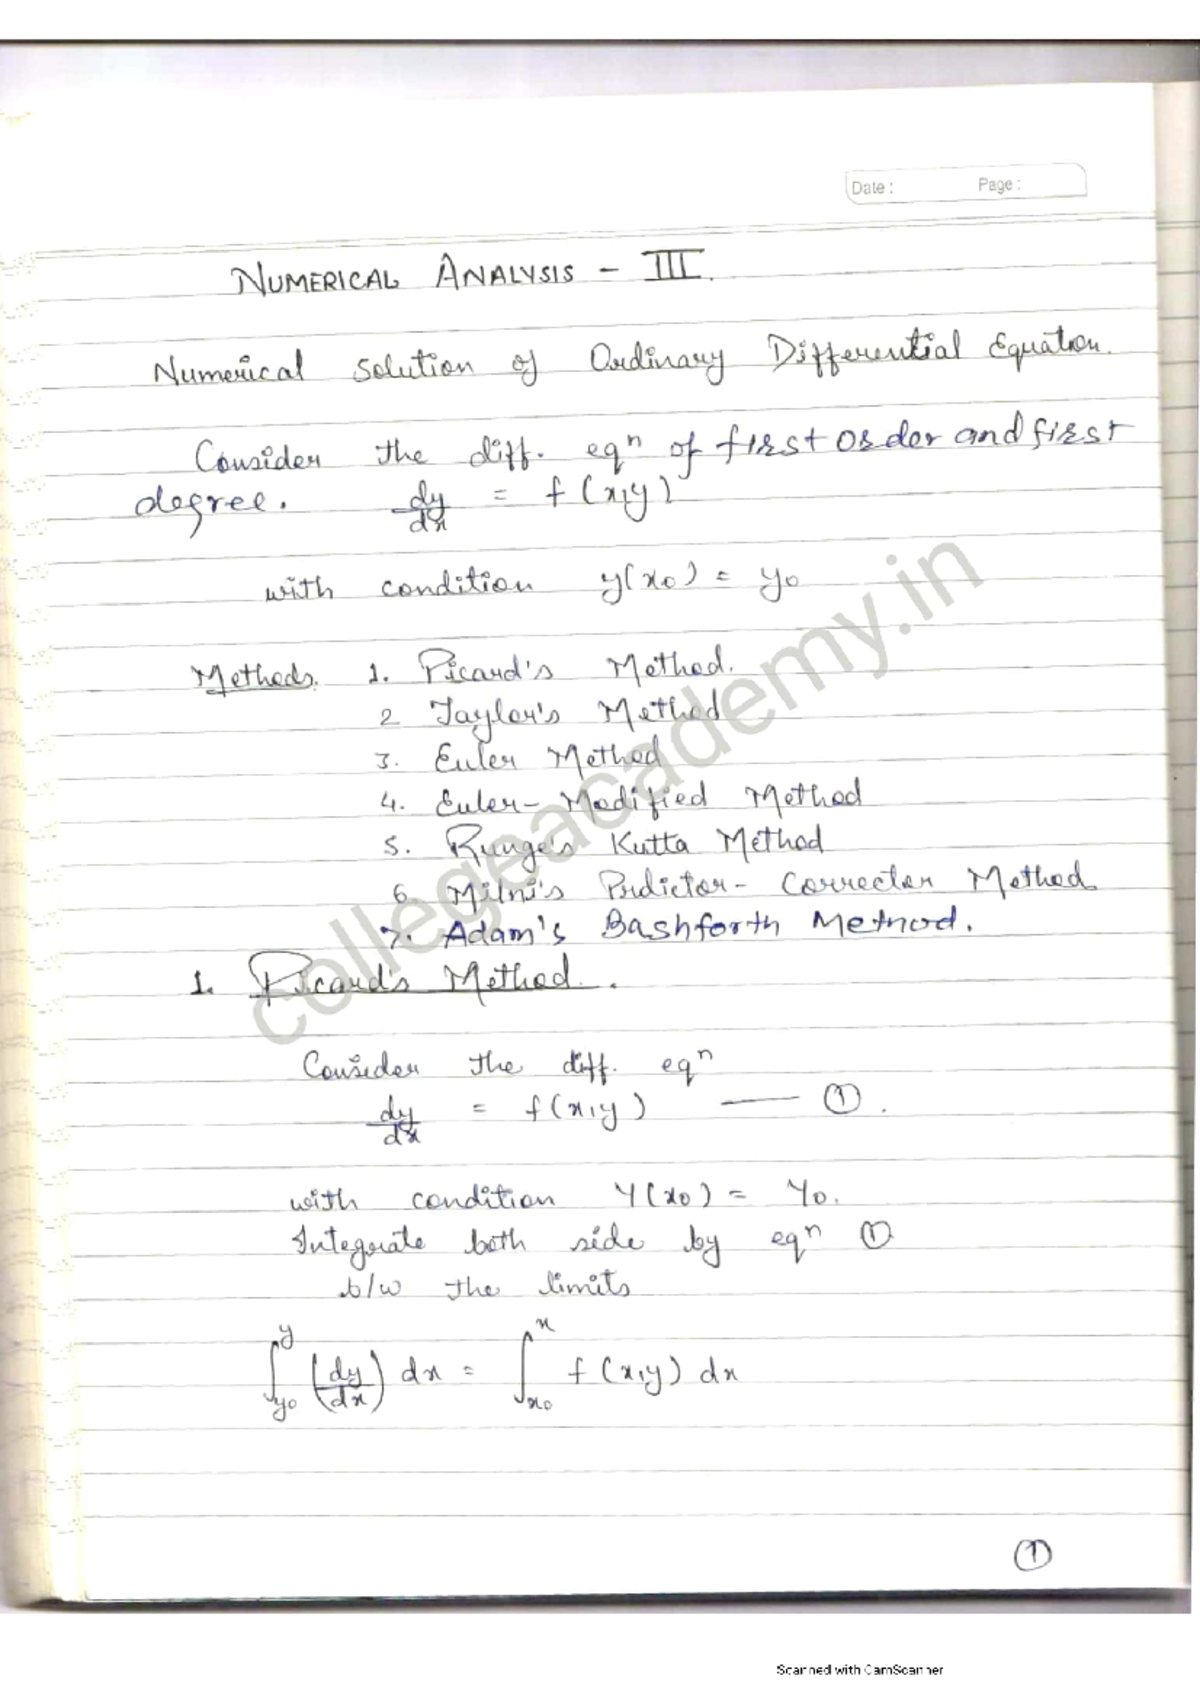 Date : Page :
NUMERICAL ANALYSIS - III.
Numerical Solution of Ordinary Differential Equation.
Consider the diff. eqⁿ of first order and first
degree. dy/dx = f(x,y)
with condition y(x₀) = y₀
Methods. 1. Picard's Method.
2 Taylor's Method
3. Euler Method
4. Euler-Modified Method
5. Runge's Kutta Method
6. Milni's Prdictor-Corrector Method
7. Adam's Bashforth Method.
1. Picard's Method.
Consider the diff. eqⁿ
dy/dx = f(x,y) — ①.
with condition Y(x₀) = Y₀.
Integrate both side by eqⁿ ①
b/w the limits
∫_{y₀}^{y} (dy/dx) dx = ∫_{x₀}^{x} f(x,y) dx
①
collegeacademy.in
Scanned with CamScanner